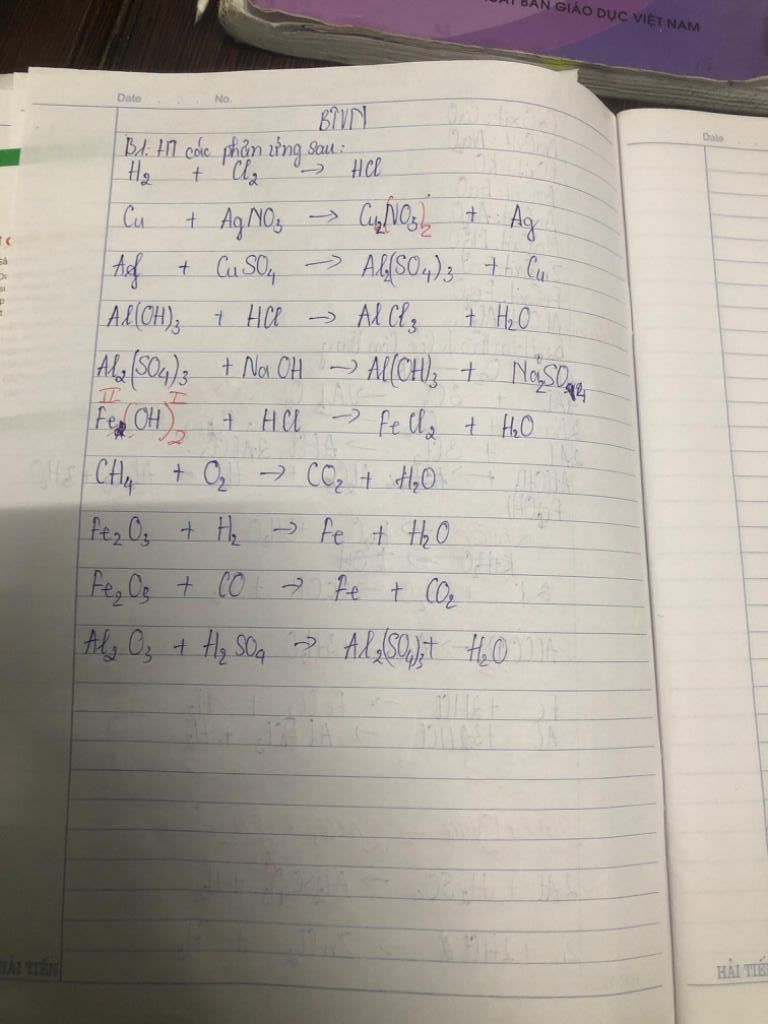 BẢN GIÁO DỤC VIỆT NAM
Date . . . . No.
Date
BTVN
B1: HT các phản ứng sau:
H₂ + Cl₂ → HCl
Cu + AgNO₃ → Cu(NO₃)₂ + Ag
Al + CuSO₄ → Al₂(SO₄)₃ + Cu
Al(OH)₃ + HCl → AlCl₃ + H₂O
Al₂(SO₄)₃ + NaOH → Al(OH)₃ + Na₂SO₄
II I
Fe(OH)₂ + HCl → FeCl₂ + H₂O
CH₄ + O₂ → CO₂ + H₂O
Fe₂O₃ + H₂ → Fe + H₂O
Fe₂O₃ + CO → Fe + CO₂
Al₂O₃ + H₂SO₄ → Al₂(SO₄)₃ + H₂O
HẢI TIẾN
HẢI TIẾN